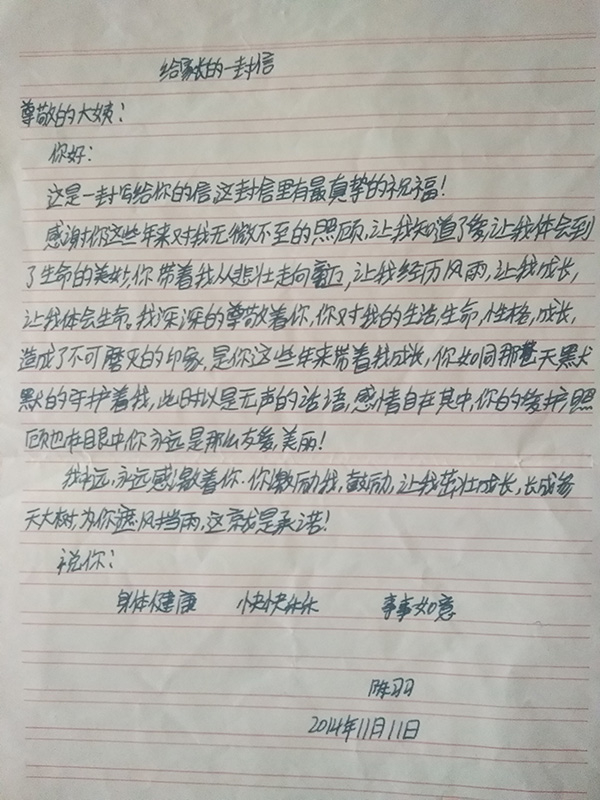 给家长的一封信
尊敬的大姨：
你好：
这是一封写给你的信,这封信里有最真挚的祝福！
感谢你这些年来对我无微不至的照顾,让我知道了爱,让我体会到
了生命的美妙,你带着我从悲壮走向,让我经历风雨,让我成长,
让我体会生命。我深深的尊敬着你,你对我的生活,生命,性格,成长,
造成了不可磨灭的印象,是你这些年来带着我成长,你如同那蓝天默
默的守护着我,此时以是无声的话语,感情自在其中,你的爱护,照
顾也在眼中你永远是那么友爱,美丽！
我永远,永远感激着你.你激励我,鼓励,让我茁壮成长,长成参
天大树,为你遮风挡雨,这就是承诺！
祝你：
身体健康 快快乐乐 事事如意
陈羽
2014年11月11日